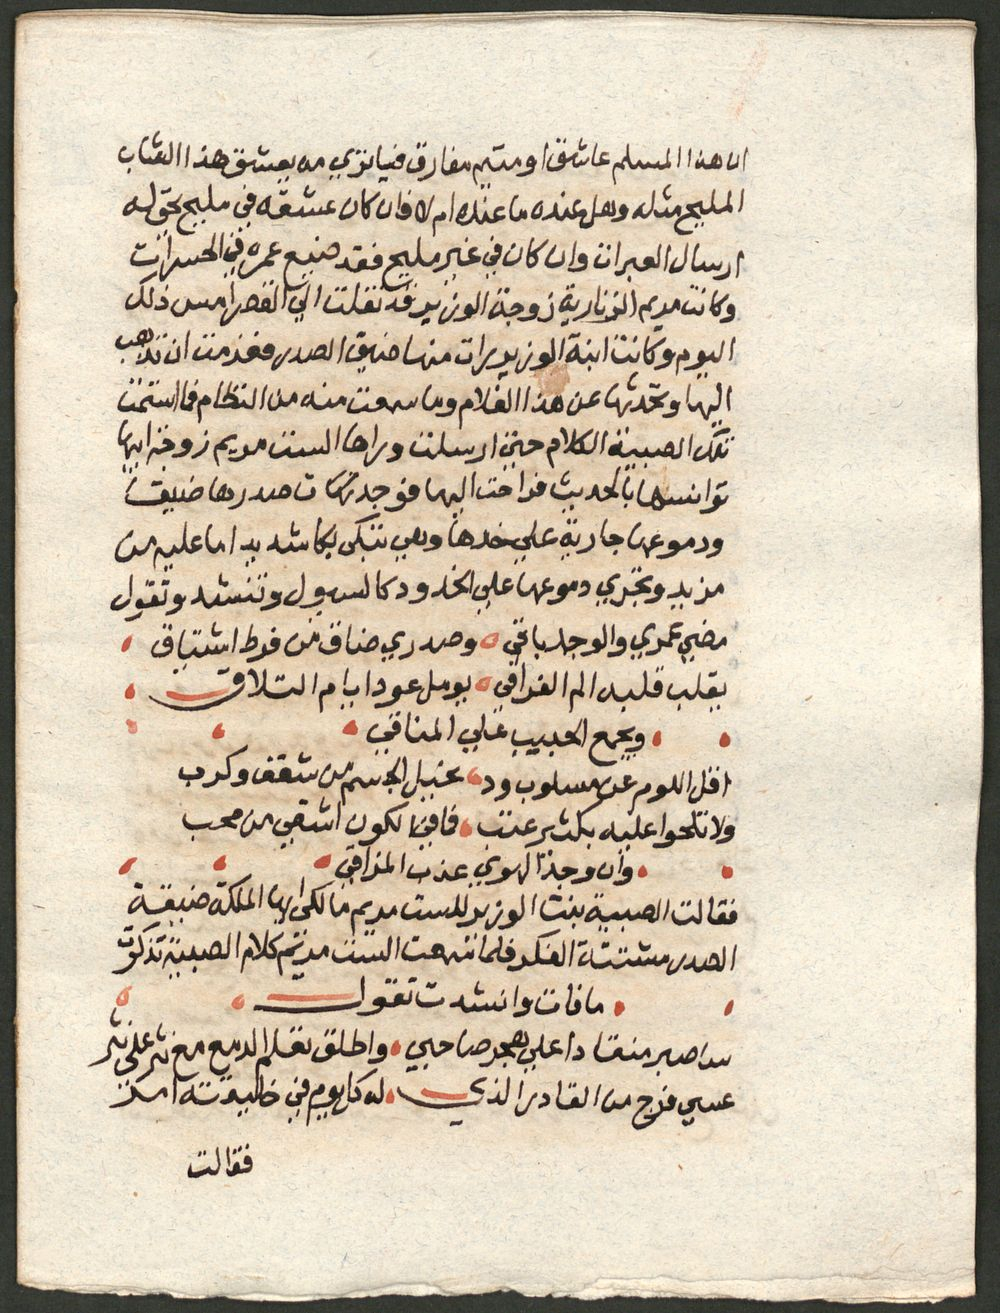 ان هذا المسلم عاشق او متيم مفارق فيا ترى من يعشق هذا الشاب
المليح مثله وهل عنده ما عنده ام لا فان كان عشقه في مليح يحق له
ارسال العبرات وان كان في غير مليح فقد ضيع عمره في الحسرات
وكانت مريم الزنارية زوجة الوزير قد نقلت الى القصر امس ذلك
اليوم وكانت ابنة الوزير رات منها ضيق الصدر فعزمت ان تذهب
اليها وتحدثها عن هذا الغلام وما سمعت منه من النظام فما استتمت
تلك الصبية الكلام حتى ارسلت وراها الست مريم زوجة ابيها
توانسها بالحديث فراحت اليها فوجدتها صدرها ضيق
ودموعها جارية على خدها وهي تبكي بكا شديد اما عليه من
مزيد وتجري دموعها على الخدود كالسيول وتنشد وتقول
مضى عمري والوجد باقي وصدري ضاق من فرط اشتياق
يقلب قلبه الم الفراقي يومل عود ايام التلاق
ويجمع الحبيب على المناقي
اقل اللوم عن مسلوب ود نحيل الجسم من شغف وكرب
ولا تلحوا عليه بكثر عتب فافى لكون اشقى من محب
وان وجد الهوى عذب المذاقي
فقالت الصبية بنت الوزير للست مريم مالك ايها الملكة ضيقة
الصدر مشتتة الفكر فلما سمعت الست مريم كلام الصبية تذكرت
ما فات وانشدت تقول
ساصبر منقادا على هجر صاحبي واطلق نظم الدمع مع نثر على نثر
عسى فرج من القادر الذي له كل يوم في خليقته امر
فقالت